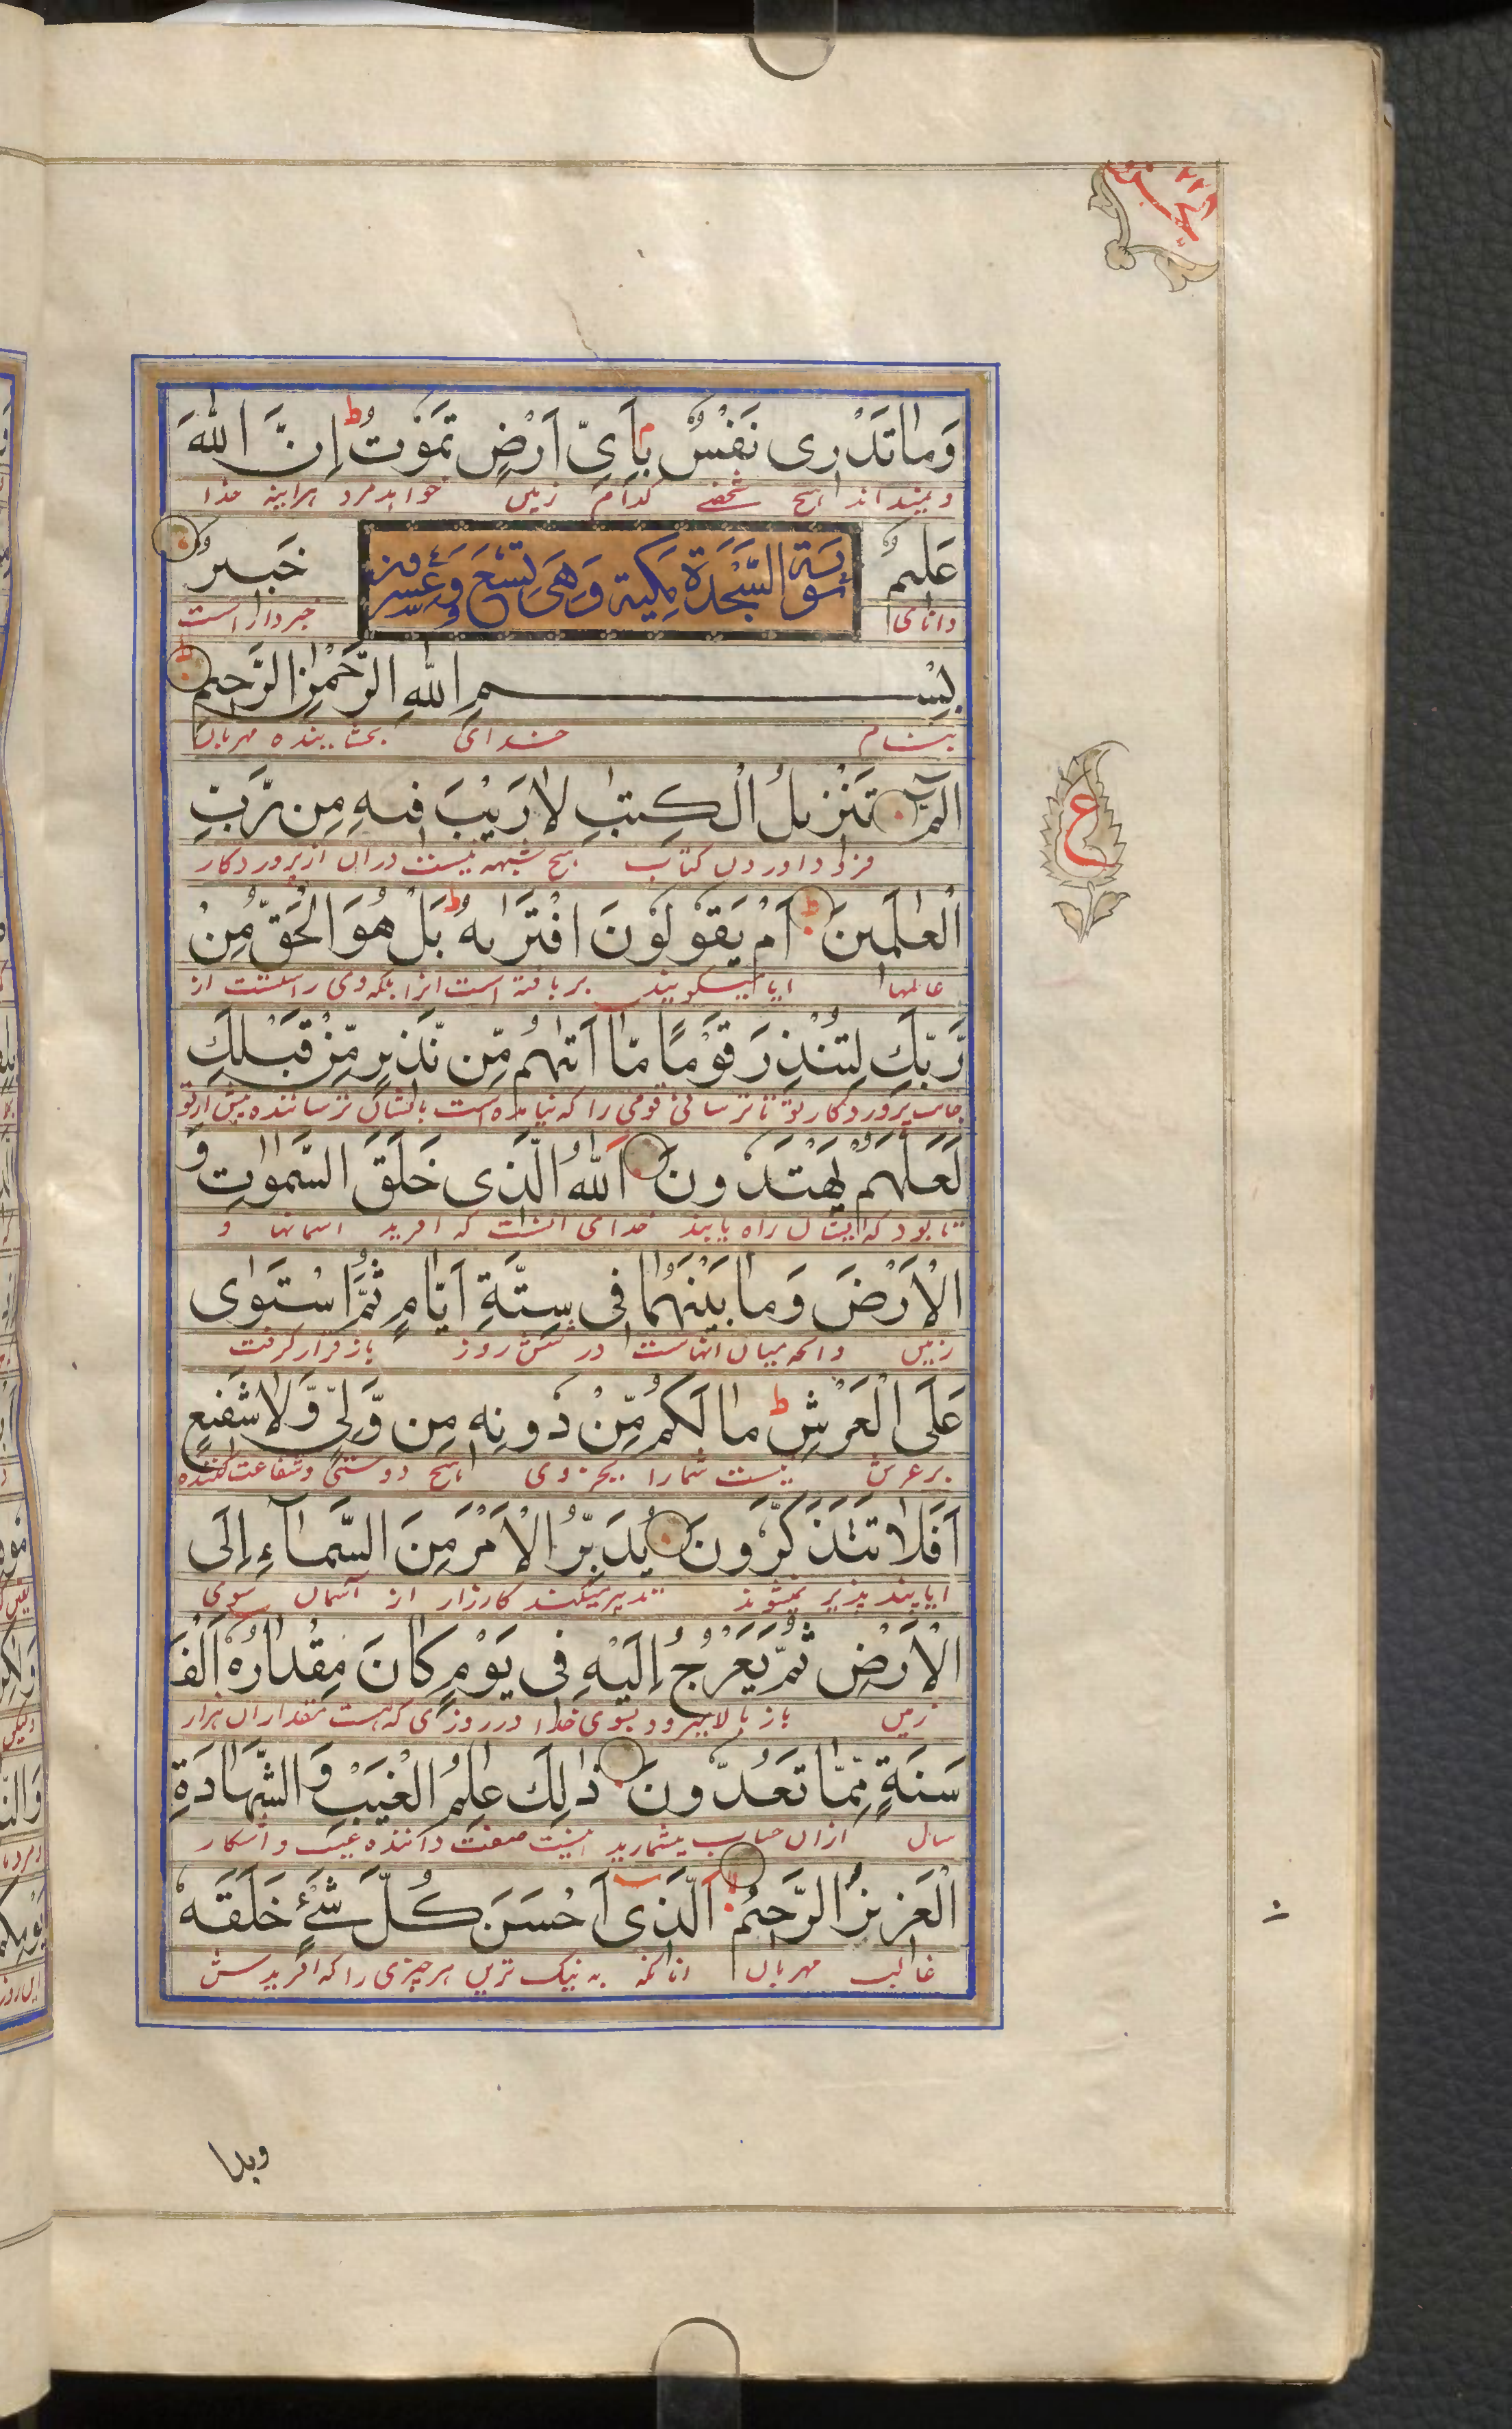 وَمَا تَدْرِی نَفْسٌ بِاَیِّ اَرْضٍ تَمُوْتُ ط اِنَّ اللّٰهَ
و نمیداند هیچ شخصے کدام زمین خواهد مرد هرآینه خدا
عَلِیْمٌ
سورة السَّجْدَة مکیة وَهِیَ تِسْعَ وَعِشرون
خَبِیْرٌ
دانای
خبردار است
بِسْمِ اللّٰهِ الرَّحْمٰنِ الرَّحِیْمِ
بنام خدای بخشاینده مهربان
الٓمّٓ تَنْزِیْلُ الْکِتٰبِ لَا رَیْبَ فِیْهِ مِنْ رَّبِّ
فرود اوردن کتاب هیچ شبهه نیست دران از پروردکار
الْعٰلَمِیْنَ ط اَمْ یَقُوْلُوْنَ افْتَرٰىهُ ط بَلْ هُوَ الْحَقُّ مِنْ
عالمها ایا میکویند بربافته است انرا بلکه وی راستست از
رَّبِّكَ لِتُنْذِرَ قَوْمًا مَّا اَتٰىهُمْ مِّنْ نَّذِیْرٍ مِّنْ قَبْلِكَ
جانب پروردکار تو تا ترسانی قومی را که نیامده است بایشان ترساننده پیش ازتو
لَعَلَّهُمْ یَهْتَدُوْنَ اَللّٰهُ الَّذِی خَلَقَ السَّمٰوٰتِ وَ
تا بود که ایشان راه یابند خدای انست که افرید اسمانها و
الْاَرْضَ وَمَا بَیْنَهُمَا فِی سِتَّةِ اَیَّامٍ ثُمَّ اسْتَوٰی
زمین وانچه میان انهاست در شش روز باز قرار کرفت
عَلَی الْعَرْشِ ط مَا لَکُمْ مِّنْ دُوْنِهٖ مِنْ وَّلِیٍّ وَّلَا شَفِیْعٍ
بر عرش نیست شما را بجز وی هیچ دوستی و شفاعت کننده
اَفَلَا تَتَذَکَّرُوْنَ یُدَبِّرُ الْاَمْرَ مِنَ السَّمَآءِ اِلَی
ایا پند پذیر نمیشوند تدبیر میکند کارزار از آسمان سوی
الْاَرْضِ ثُمَّ یَعْرُجُ اِلَیْهِ فِی یَوْمٍ کَانَ مِقْدَارُهٗ اَلْفَ
زمین باز بالا میرود بسوی خدا در روزی که هست مقدار ان هزار
سَنَةٍ مِّمَّا تَعُدُّوْنَ ذٰلِكَ عٰلِمُ الْغَیْبِ وَ الشَّهَادَةِ
سال ازان حساب میشمارید اینست صفت داننده غیب و اشکار
الْعَزِیْزُ الرَّحِیْمُ لا الَّذِی اَحْسَنَ کُلَّ شَیْءٍ خَلَقَهٗ
غالب مهربان انانکه به نیک ترین هر چیزی را که افریدش
وبدا
ع